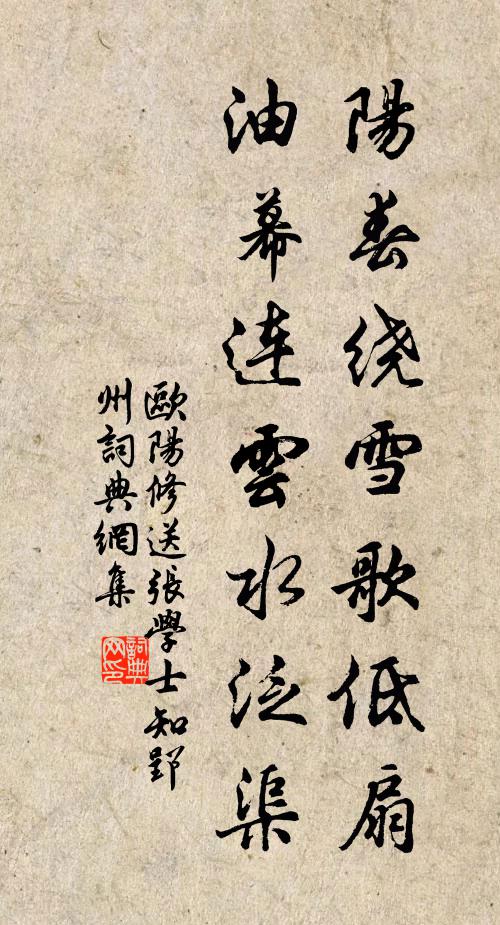 陽春绕雪歌低扇
油幕連雲水泛渠
歐陽修送張學士知郢
州詞典網集
詞典
网印